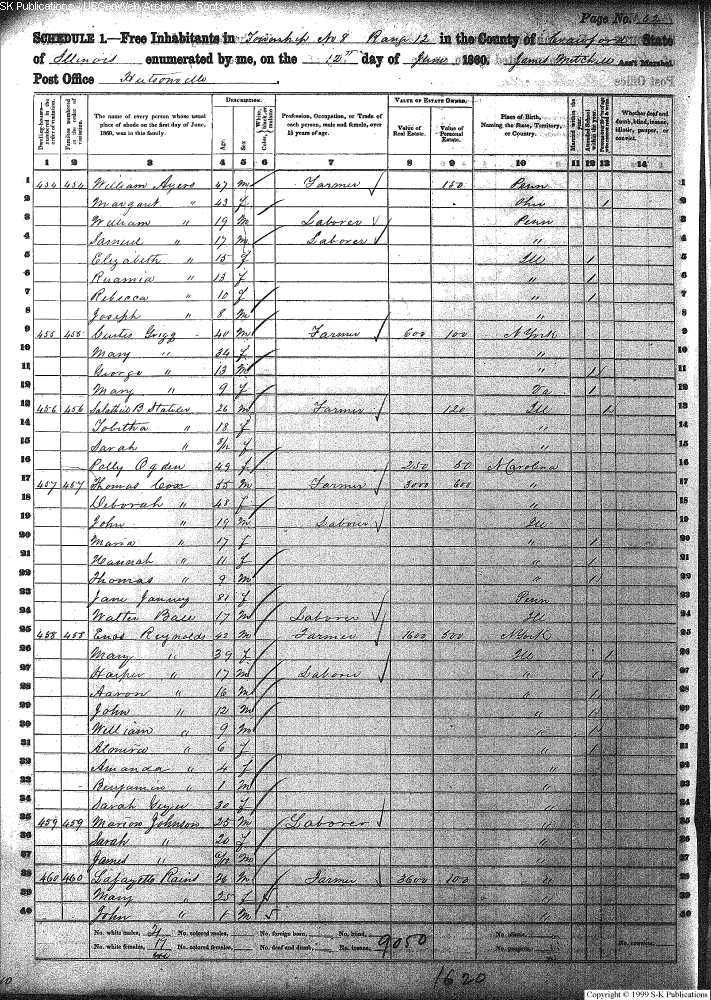 SK Publications - USGenWeb Archives - Rootsweb
Page No. 62
SCHEDULE 1.—Free Inhabitants in Township No 8 Range 12 in the County of Crawford State
of Illinois enumerated by me, on the 12th day of June 1860. James Mitchell Ass't Marshal
Post Office Hutsonville
DESCRIPTION. VALUE OF ESTATE OWNED.
Dwelling-houses— numbered in the order of visitation.
Families numbered in the order of visitation.
The name of every person whose usual place of abode on the first day of June, 1860, was in this family.
Age. Sex.
Profession, Occupation, or Trade of each person, male and female, over 15 years of age.
Value of Real Estate.
Value of Personal Estate.
Place of Birth, Naming the State, Territory, or Country.
Married within the year.
Attended School within the year.
Whether deaf and dumb, blind, insane, idiotic, pauper, or convict.
1 2 3 4 5 6 7 8 9 10 11 12 13 14
1 454 454 William Ayers 47 m Farmer 150 Penn 1
2 Margaret " 43 f Ohio 1 2
3 William " 19 m Laborer Penn 3
4 Samuel " 17 m Laborer " 4
5 Elizabeth " 15 f Ill 1 5
6 " 13 f " 1 6
7 Rebecca " 10 f " 1 7
8 Joseph " 8 m " 8
9 455 455 Curtis Grigg 40 m Farmer 600 100 N York 9
10 Mary " 34 f " 10
11 George " 13 m " 1 11
12 Mary " 9 f 1 12
13 456 456 B 26 m Farmer 120 Ill 1 13
14 Tobitha " 18 f " 14
15 Sarah " f " 15
16 Polly Ogden 49 f 250 50 N Carolina 16
17 457 457 Thomas Cox 55 m Farmer 3000 600 " 17
18 Deborah " 48 f " 18
19 John " 19 m Labour Ill 19
20 Maria " 17 f " 1 20
21 Hannah " 11 f " 1 21
22 Thomas " 9 m " 1 22
23 Jane Janney 81 f Penn 23
24 Walter Bale 17 m Laborer Ill 24
25 458 458 Enos Reynolds 42 m Farmer 1600 500 N York 25
26 Mary " 39 f Ill 1 26
27 Harper " 17 m Laborer " 1 27
28 Aaron " 16 m " 1 28
29 John " 12 m " 1 29
30 William " 9 m " 1 30
31 Almira " 6 f " 1 31
32 Amanda " 4 f " 32
33 Benjamin " 1 m " 33
34 Sarah 30 f " 34
35 459 459 Marion Johnson 25 m Laborer " 35
36 Sarah " 20 f " 36
37 James " m " 37
38 460 460 Lafayette Rains 26 m Farmer 3600 100 " 38
39 Mary " 25 f " 39
40 John " 1 m " 40
No. white males, 21 No. colored males, No. foreign born, No. blind, No. idiotic,
No. white females, 19 No. colored females, No. deaf and dumb, No. insane, 9050 No. paupers, No. convicts,
1620
Copyright © 1999 S-K Publications